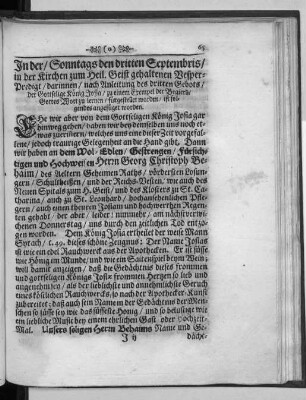 (o) 65
In der / Sonntags den dritten Septembris /
in der Kirchen zum Heil. Geist gehaltenen Vesper-
Predigt / darinnen / nach Anleitung des dritten Gebots /
der Gottselige König Josia / zu einem Exempel der Begierd /
Gottes Wort zu lernen / fürgestellet worden / ist fol-
gendes angefüget worden.
Ehe wir aber von dem Gottseligen König Josia gar
hinweg gehen / haben wir bey demselben uns noch et-
was zuerinnern / welches uns eine dieser Zeit vorgefal-
lene / jedoch traurige Gelegenheit an die Hand gibt. Dann
wir haben an dem Wol-Edlen / Gestrengen / Fürsich-
tigen und Hochweisen Herrn Georg Christoph Be-
haim / des Aeltern Geheimen Raths / vördersten Losun-
gern / Schultheissen / und der Reichs-Vesten / wie auch des
Neuen Spitals zum H. Geist / und des Klosters zu St. Ca-
tharina / auch zu St. Leonhard / hochansehenlichen Pfle-
gern / auch einen theuren Josiam und hochwerthen Regen-
ten gehabt / der aber / leider! nunmehr / am nächstverwi-
chenen Donnerstag / uns durch den zeitlichen Tod entzo-
gen worden. Dem König Josia ertheilet der weise Mann
Syrach / c. 49. dieses schöne Zeugnus: Der Name Josias
ist wie ein edel Rauchwerck aus der Apothecken. Er ist süsse
wie Hönig im Munde / und wie ein Saitenspiel beym Wein /
woll damit anzeigen / daß die Gedächtnus dieses frommen
und gottseligen Königs Josiæ frommen Hertzen so lieb und
angenehm seye / als der lieblichste und annehmlichste Geruch
eines köstlichen Rauchwercks / so nach der Apothecker-Kunst
zubereitet: daß auch sein Namen der Gedächtnus der Men-
schen so süsse sey wie das süsseste Honig / und so belustige wie
ein liebliche Music bey einem ehrlichen Gast- oder Hochzeit-
Mal. Unsers seligen Herrn Behaims Name und Ge-
J ij dächt-